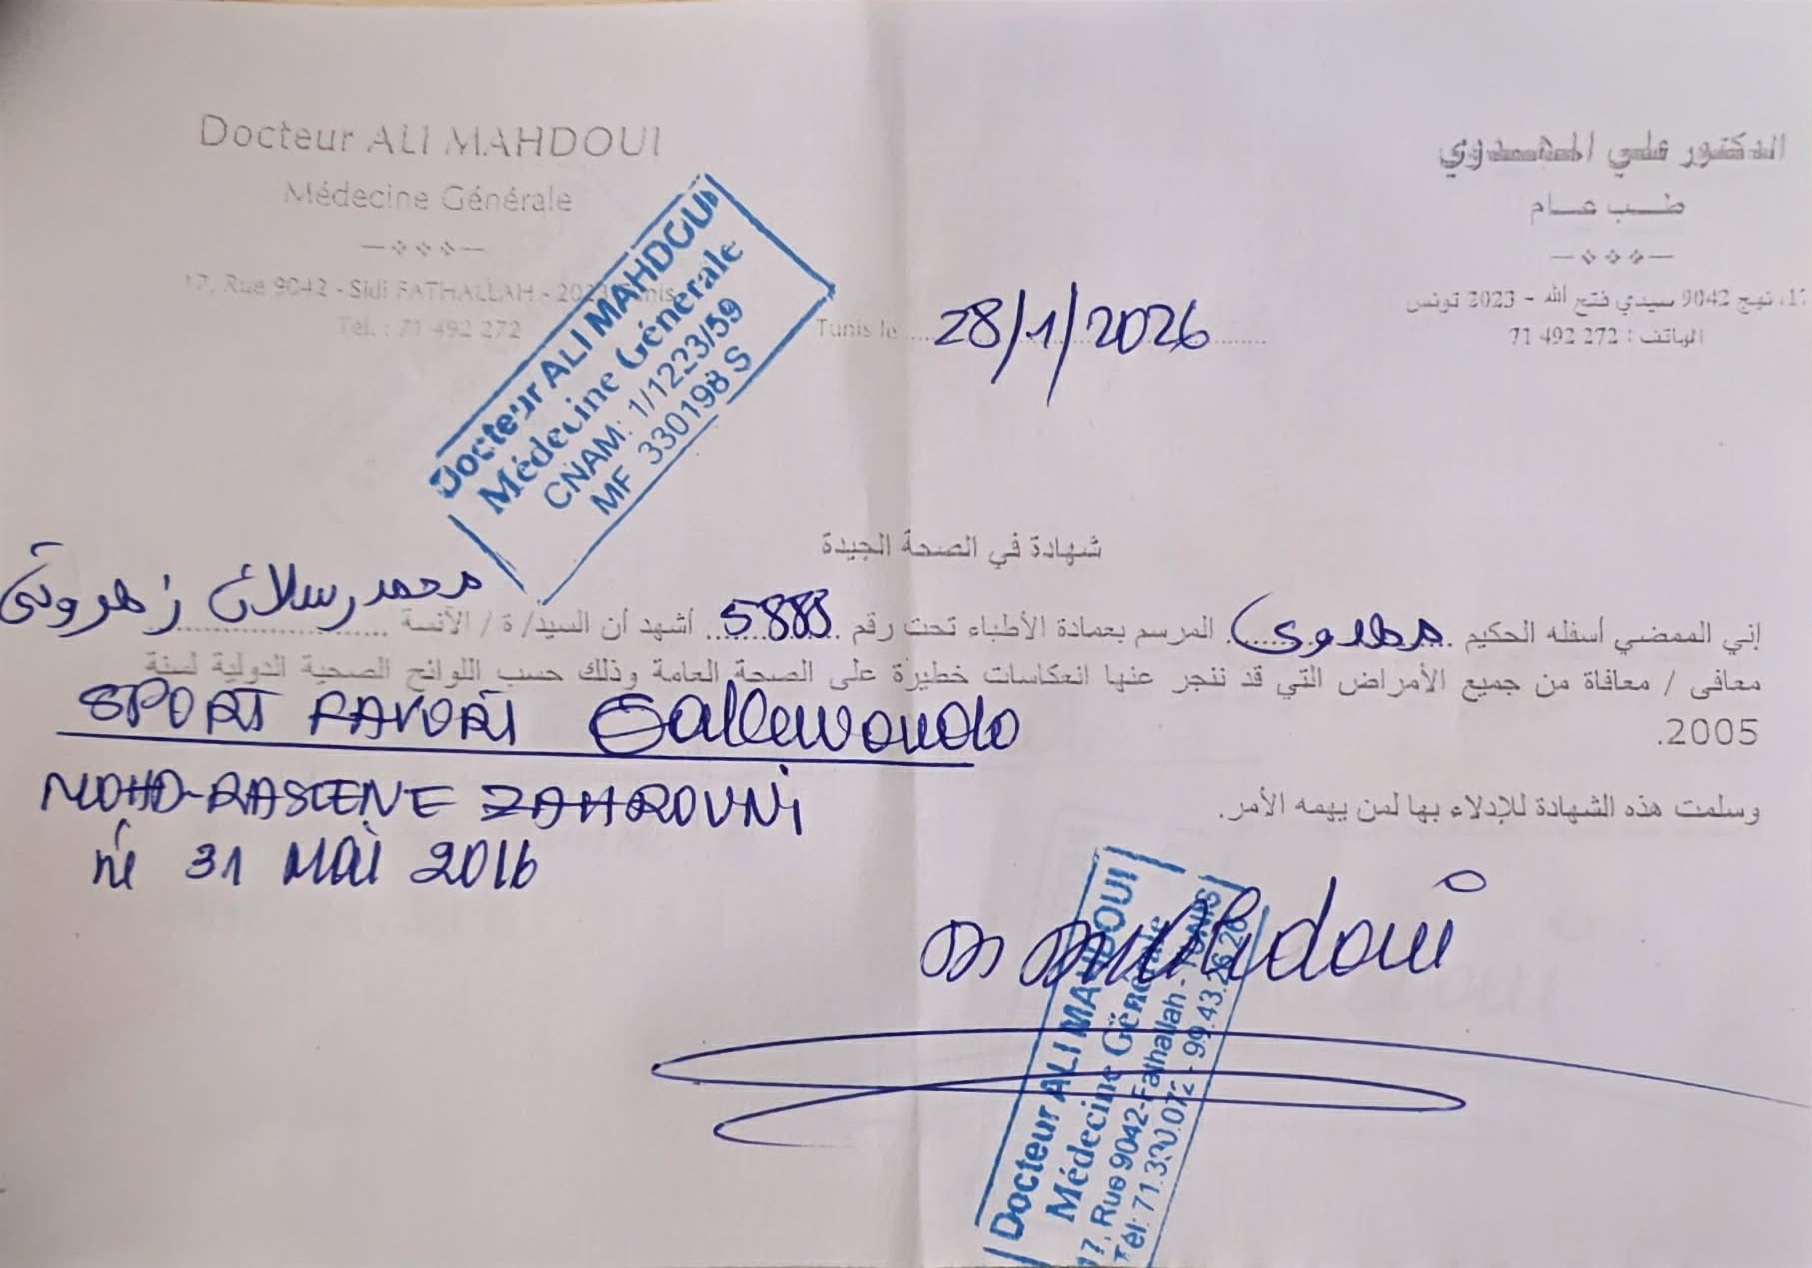 Docteur ALI MAHDOUI
Médecine Générale
17, Rue 9042 - Sidi FATHALLAH - 2023 Tunis
Tél. : 71 492 272
الدكتور علي المهدوي
طب عام
17، نهج 9042 سيدي فتح الله - 2023 تونس
الهاتف : 272 492 71
Docteur ALI MAHDOUI
Médecine Générale
CNAM: 1/1223/59
MF 330198 S
Tunis le 28/1/2026
شهادة في الصحة الجيدة
إني الممضي أسفله الحكيم مهدوي المرسم بعمادة الأطباء تحت رقم 5883 أشهد أن السيد/ ة / الآنسة محمد رسلان زهروني
معافى / معافاة من جميع الأمراض التي قد ننجر عنها انعكاسات خطيرة على الصحة العامة وذلك حسب اللوائح الصحية الدولية لسنة
2005.
SPORT FAVORI
MOHD-RASLENE ZAHROUNI
né 31 MAI 2016
وسلمت هذه الشهادة للإدلاء بها لمن يهمه الأمر.
Mahdoui
Docteur ALI MAHDOUI
Médecine Générale
17, Rue 9042-Fathallah - TUNIS
Tél: 71.390.072 - 99.43.26.26